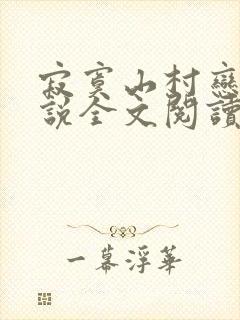 寂寞山村戀
說全文閱讀
一幕浮華